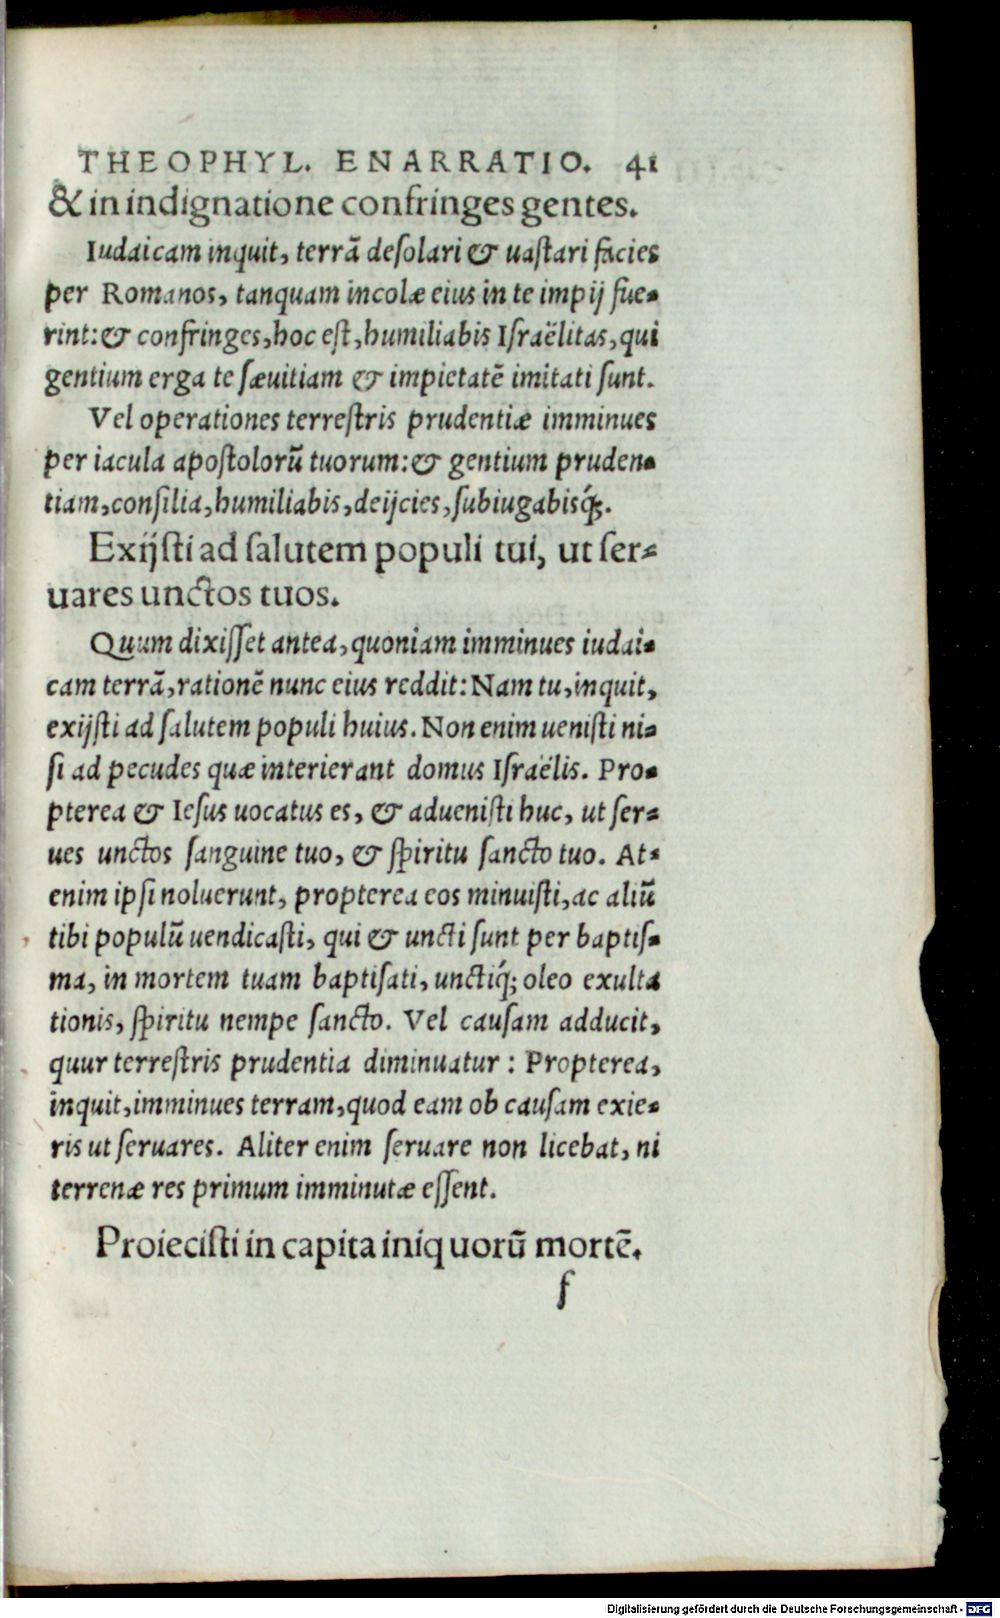 THEOPHYL. ENARRATIO. 41
& in indignatione confringes gentes.
Iudaicam inquit, terrã desolari & uastari facies
per Romanos, tanquam incolæ eius in te impij fue-
rint: & confringes, hoc est, humiliabis Israëlitas, qui
gentium erga te sæuitiam & impietatẽ imitati sunt.
Vel operationes terrestris prudentiæ imminues
per iacula apostolorũ tuorum: & gentium pruden-
tiam, consilia, humiliabis, deijcies, subiugabisq́;.
Exijsti ad salutem populi tui, ut ser-
uares unctos tuos.
Quum dixisset antea, quoniam imminues iudai-
cam terrã, rationẽ nunc eius reddit: Nam tu, inquit,
exijsti ad salutem populi huius. Non enim uenisti ni-
si ad pecudes quæ interierant domus Israëlis. Pro-
pterea & Iesus uocatus es, & aduenisti huc, ut ser-
ues unctos sanguine tuo, & spiritu sancto tuo. At-
enim ipsi noluerunt, propterea eos minuisti, ac aliũ
tibi populũ uendicasti, qui & uncti sunt per baptis-
ma, in mortem tuam baptisati, unctiq́; oleo exulta
tionis, spiritu nempe sancto. Vel causam adducit,
quur terrestris prudentia diminuatur : Propterea,
inquit, imminues terram, quod eam ob causam exie-
ris ut seruares. Aliter enim seruare non licebat, ni
terrenæ res primum imminutæ essent.
Proiecisti in capita iniquorũ mortẽ.
f
Digitalisierung gefördert durch die Deutsche Forschungsgemeinschaft - DFG